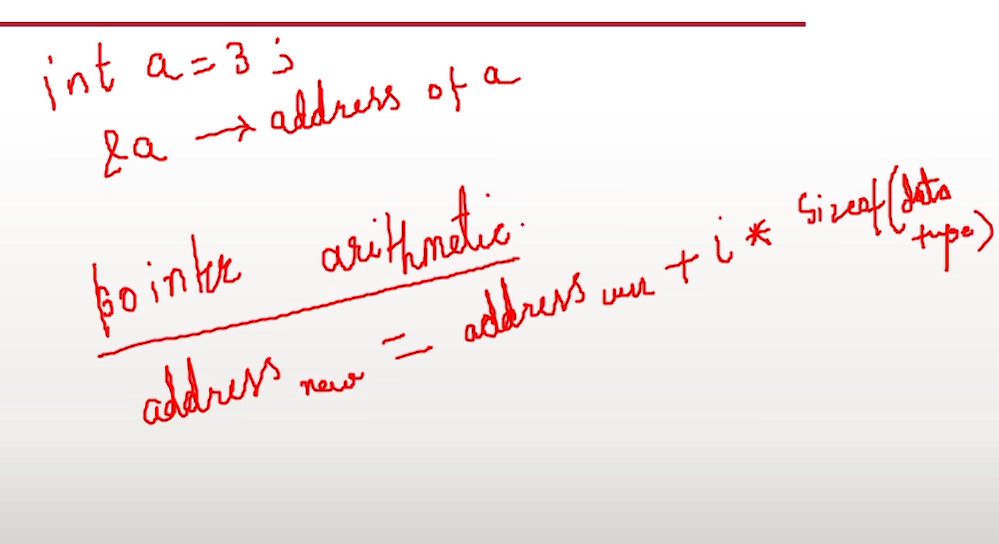 int a = 3 ;
&a → address of a
pointer arithmetic.
address new = address curr + i * sizeof(data type)